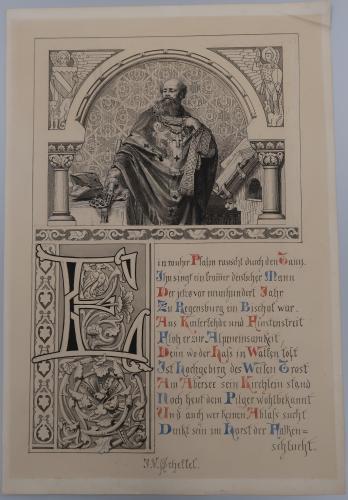 Ein rauher Psalm rauscht durch den Tann,
Ihn singt ein braver deutscher Mann
Der jetzo vor neunhundert Jahr
Zu Regensburg ein Bischof war.
Aus Kaiserfehde und Fürstenstreit
Floh er zur Alpeneinsamkeit,
Denn wo der Haß in Waffen tost
Ist Hochgebirg des Weisen Trost
Am Abersee sein Kirchlein stand
Noch heut dem Pilger wohlbekannt
Und auch wer keinen Ablaß sucht
Denkt sein im Horst der Falken=
schlucht.
J.V. Scheffel.